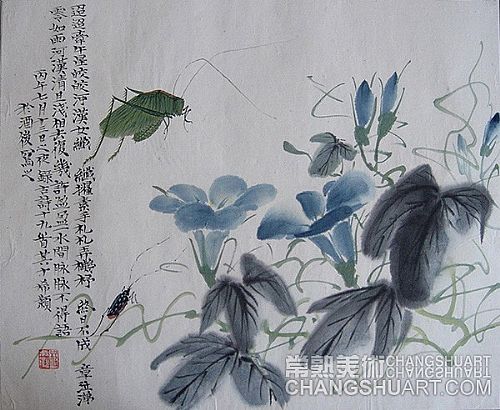 迢迢牽牛星皎皎河漢女纖纖擢素手札札弄機杼終日不成章泣涕
零如雨河漢清且淺相去復幾許盈盈一水間脉脉不得語
丙午七月十三日之夜錄古詩十九首其十希顏
於酒後寫之
常熟美術 CHANGSHUART
CHANGSHUART.COM